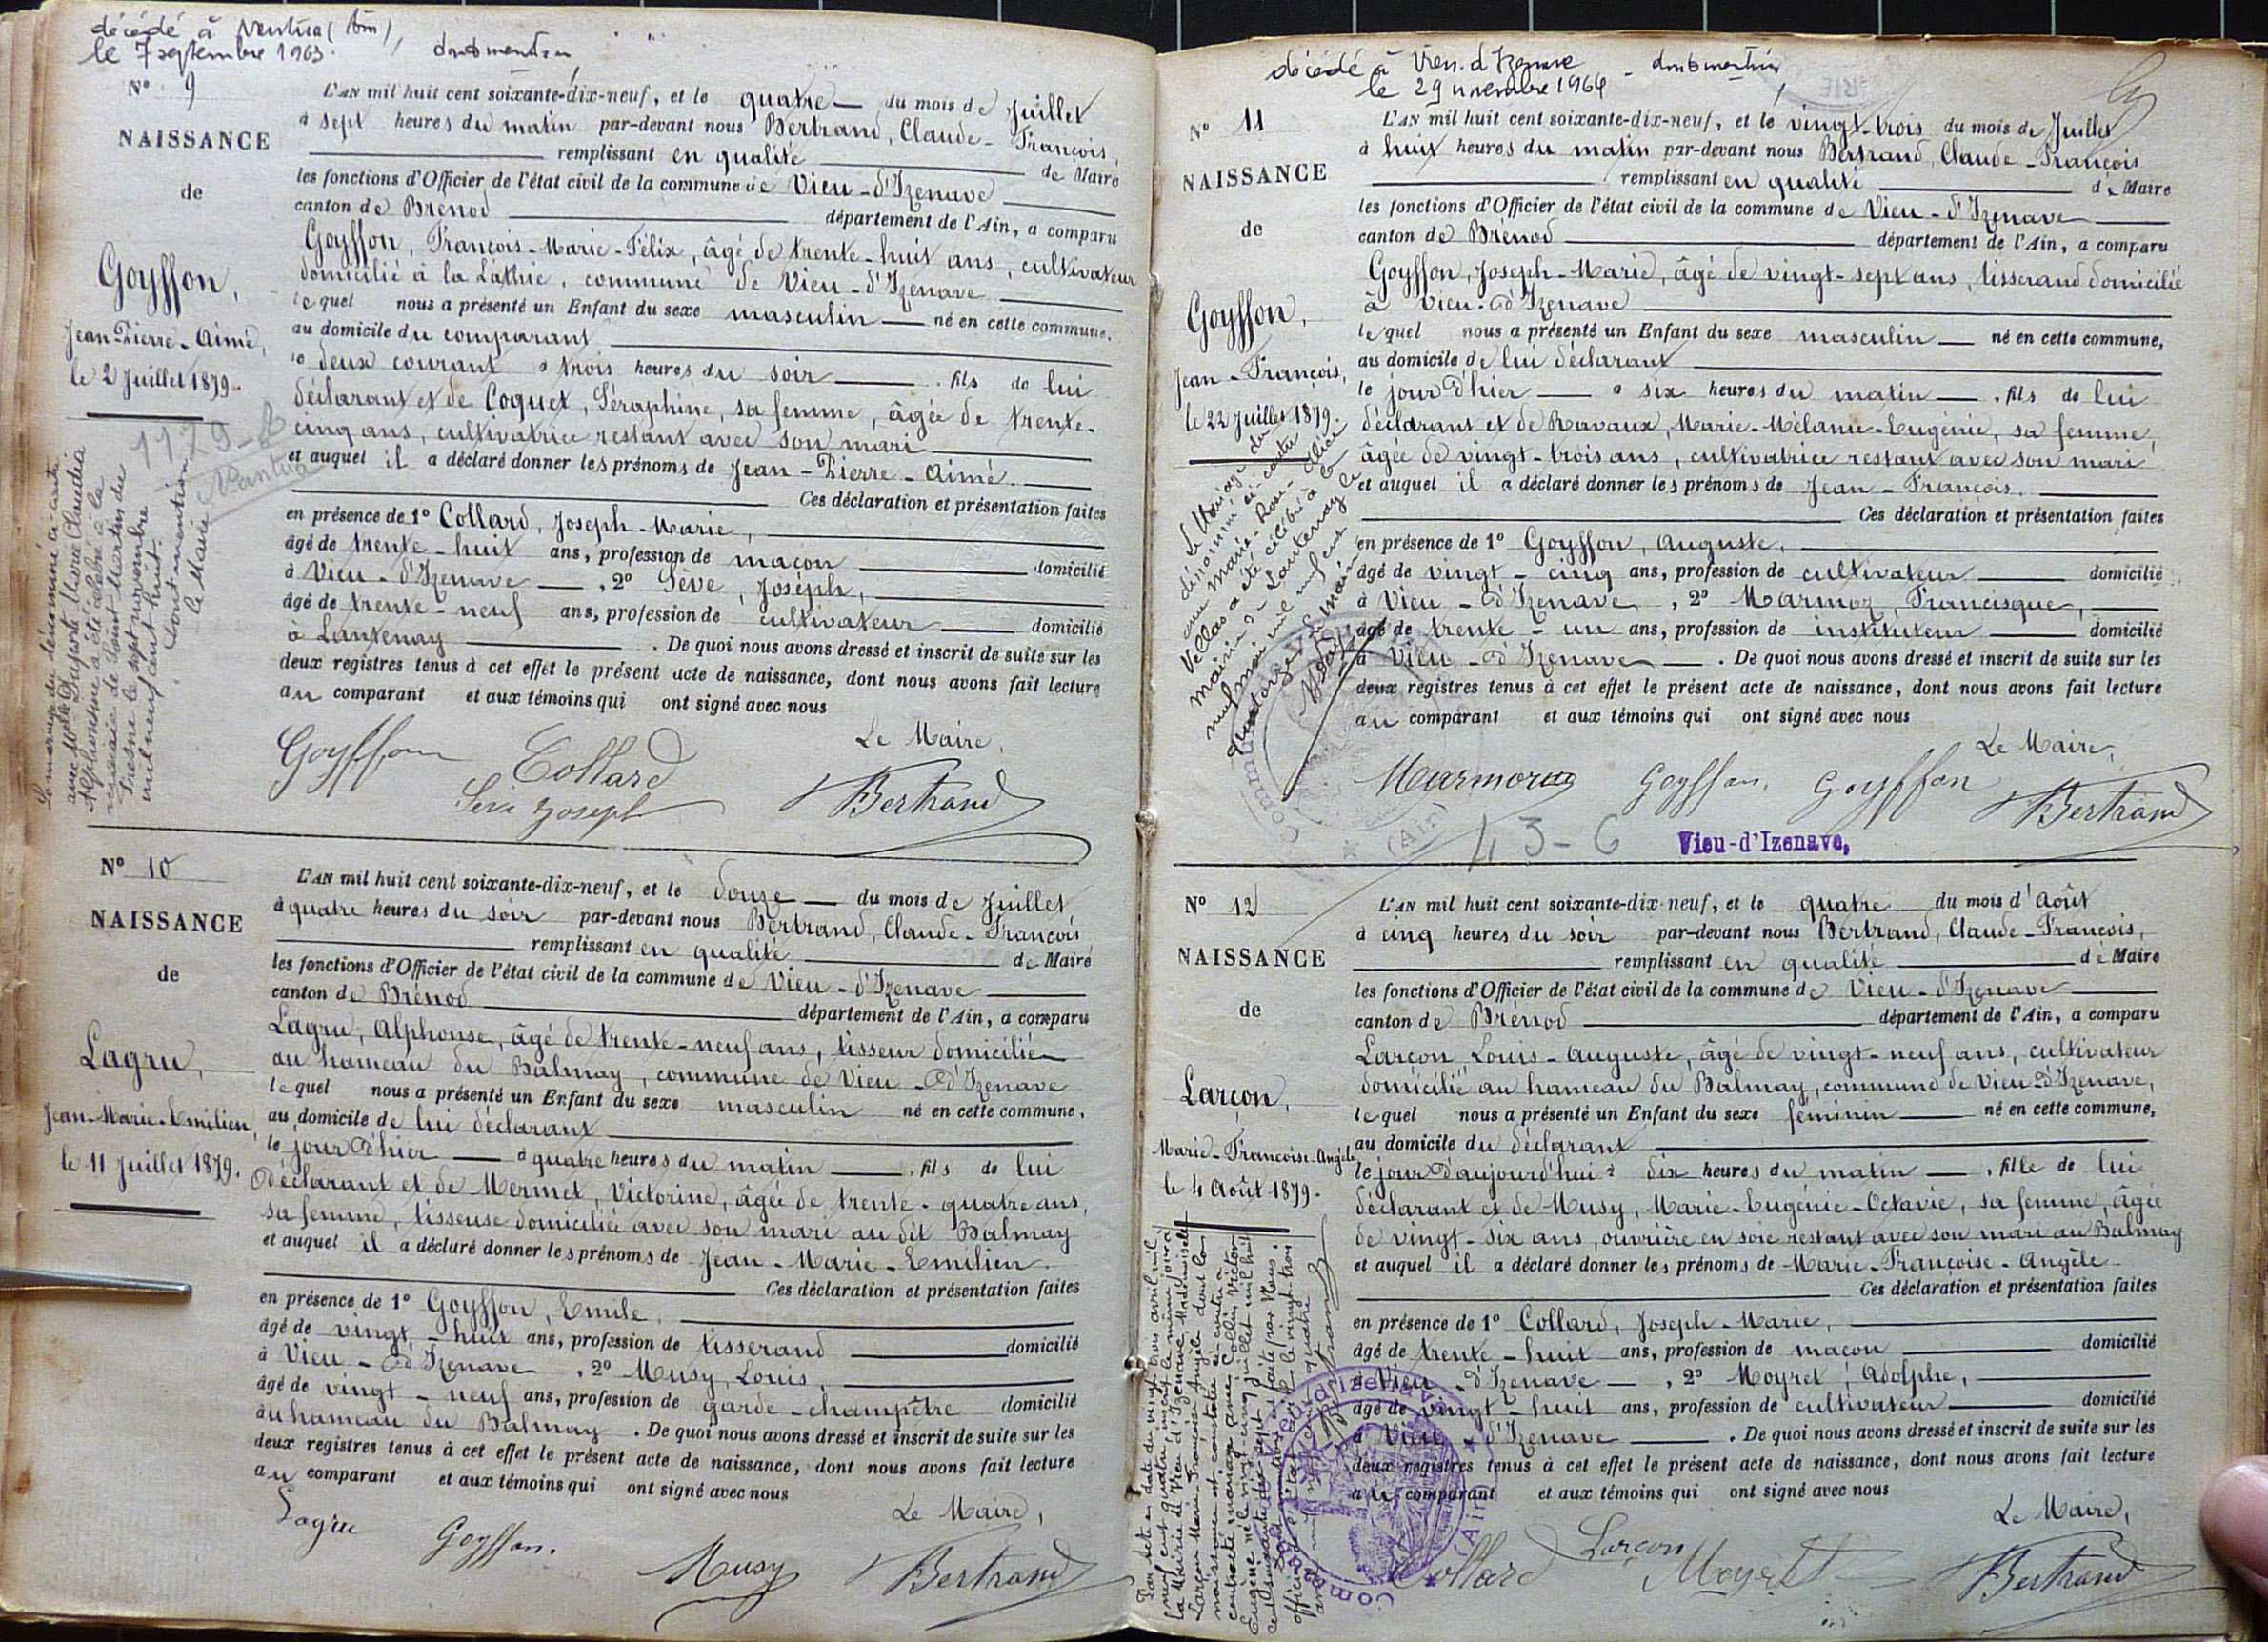 décédé à Nantua (Ain),
le 7 septembre 1963. dont mention
N° 9
NAISSANCE
de
Goyffon,
Jean-Pierre-Aimé,
le 2 Juillet 1879.
L'AN mil huit cent soixante-dix-neuf, et le quatre du mois de Juillet
à sept heures du matin par-devant nous Bertrand, Claude-François,
remplissant en qualité de Maire
les fonctions d'Officier de l'état civil de la commune de Vieu-d'Izenave
canton de Brénod département de l'Ain, a comparu
Goyffon, François-Marie-Félix, âgé de trente-huit ans, cultivateur
domicilié à la commune de Vieu-d'Izenave
lequel nous a présenté un Enfant du sexe masculin né en cette commune,
au domicile du comparant
le deux courant à trois heures du soir, fils de lui
déclarant et de Coquet, Séraphine, sa femme, âgée de trente-
cinq ans, cultivatrice restant avec son mari
et auquel il a déclaré donner les prénoms de Jean-Pierre-Aimé.
Ces déclaration et présentation faites
en présence de 1° Collard, Joseph-Marie,
âgé de trente-huit ans, profession de maçon domicilié
à Vieu-d'Izenave, 2° Sève, Joseph,
âgé de trente-neuf ans, profession de cultivateur domicilié
à Lantenay. De quoi nous avons dressé et inscrit de suite sur les
deux registres tenus à cet effet le présent acte de naissance, dont nous avons fait lecture
au comparant et aux témoins qui ont signé avec nous
Le Maire,
Goyffon Collard
Sève Joseph Bertrand
Le mariage du dénommé ci-contre
avec Mlle Duporte Marie Claudia
Alphonsine a été célébré à la
mairie de Saint Martin du
Fresne le sept novembre
mil neuf cent huit.
Dont mention.
le Maire
Nantua
N° 10
NAISSANCE
de
Lagru,
Jean-Marie-Emilien,
le 11 Juillet 1879.
L'AN mil huit cent soixante-dix-neuf, et le douze du mois de Juillet
à quatre heures du soir par-devant nous Bertrand, Claude-François
remplissant en qualité de Maire
les fonctions d'Officier de l'état civil de la commune de Vieu-d'Izenave
canton de Brénod département de l'Ain, a comparu
Lagru, Alphonse, âgé de trente-neuf ans, tisseur domicilié
au hameau du Balmay, commune de Vieu-d'Izenave
lequel nous a présenté un Enfant du sexe masculin né en cette commune,
au domicile de lui déclarant
le jour d'hier à quatre heures du matin, fils de lui
déclarant et de Mermet, Victorine, âgée de trente-quatre ans,
sa femme, tisseuse domiciliée avec son mari au dit Balmay
et auquel il a déclaré donner les prénoms de Jean-Marie-Emilien.
Ces déclaration et présentation faites
en présence de 1° Goyffon, Emile,
âgé de vingt-huit ans, profession de tisserand domicilié
à Vieu-d'Izenave, 2° Musy, Louis,
âgé de vingt-neuf ans, profession de garde-champêtre domicilié
au hameau du Balmay. De quoi nous avons dressé et inscrit de suite sur les
deux registres tenus à cet effet le présent acte de naissance, dont nous avons fait lecture
au comparant et aux témoins qui ont signé avec nous
Le Maire,
Lagru Goyffon. Musy Bertrand
décédé à Vieu d'Izenave - dont mention
le 29 novembre 1964
N° 11
NAISSANCE
de
Goyffon,
Jean-François,
le 22 Juillet 1879.
L'AN mil huit cent soixante-dix-neuf, et le vingt-trois du mois de Juillet
à huit heures du matin par-devant nous Bertrand, Claude-François
remplissant en qualité de Maire
les fonctions d'Officier de l'état civil de la commune de Vieu-d'Izenave
canton de Brénod département de l'Ain, a comparu
Goyffon, Joseph-Marie, âgé de vingt-sept ans, tisserand domicilié
à Vieu-d'Izenave
lequel nous a présenté un Enfant du sexe masculin né en cette commune,
au domicile de lui déclarant
le jour d'hier à six heures du matin, fils de lui
déclarant et de Ravaux, Marie-Mélanie-Eugénie, sa femme,
âgée de vingt-trois ans, cultivatrice restant avec son mari
et auquel il a déclaré donner les prénoms de Jean-François.
Ces déclaration et présentation faites
en présence de 1° Goyffon, Auguste,
âgé de vingt-cinq ans, profession de cultivateur domicilié
à Vieu-d'Izenave, 2° Marmoz, Francisque,
âgé de trente-un ans, profession de instituteur domicilié
à Vieu-d'Izenave. De quoi nous avons dressé et inscrit de suite sur les
deux registres tenus à cet effet le présent acte de naissance, dont nous avons fait lecture
au comparant et aux témoins qui ont signé avec nous
Le Maire,
Goyffon. Goyffon Bertrand
Le Mariage du
dénommé ci-contre
avec Marie-Rose-Alice
a été célébré à la
mairie de Lantenay le
neuf mai mil neuf cent
(Ain)
43-6 Vieu-d'Izenave,
N° 12
NAISSANCE
de
Larçon,
Marie-Françoise-Angèle
le 4 Août 1879.
L'AN mil huit cent soixante-dix-neuf, et le quatre du mois d'Août
à cinq heures du soir par-devant nous Bertrand, Claude-François,
remplissant en qualité de Maire
les fonctions d'Officier de l'état civil de la commune de Vieu-d'Izenave
canton de Brénod département de l'Ain, a comparu
Larçon, Louis-Auguste, âgé de vingt-neuf ans, cultivateur
domicilié au hameau du Balmay, commune de Vieu-d'Izenave,
lequel nous a présenté un Enfant du sexe féminin né en cette commune,
au domicile du déclarant
le jour d'aujourd'hui à dix heures du matin, fille de lui
déclarant et de Musy, Marie-Eugénie-Octavie, sa femme, âgée
de vingt-six ans, ouvrière en soie restant avec son mari au Balmay
et auquel il a déclaré donner les prénoms de Marie-Françoise-Angèle
Ces déclaration et présentation faites
en présence de 1° Collard, Joseph-Marie,
âgé de trente-huit ans, profession de maçon domicilié
à Vieu-d'Izenave, 2° Moyret, Adolphe,
âgé de vingt-huit ans, profession de cultivateur domicilié
à Vieu-d'Izenave. De quoi nous avons dressé et inscrit de suite sur les
deux registres tenus à cet effet le présent acte de naissance, dont nous avons fait lecture
au comparant et aux témoins qui ont signé avec nous
Le Maire,
Collard Larçon Moyret Bertrand
Par acte en date du vingt-trois avril mil
neuf cent quatre, inscrit le même jour à
la Mairie de Vieu d'Izenave, Mademoiselle
Larçon Marie-Françoise Angèle dont la
naissance est constatée ci-contre a
contracté mariage avec Collin Victor
Eugène né le vingt-cinq juillet mil huit